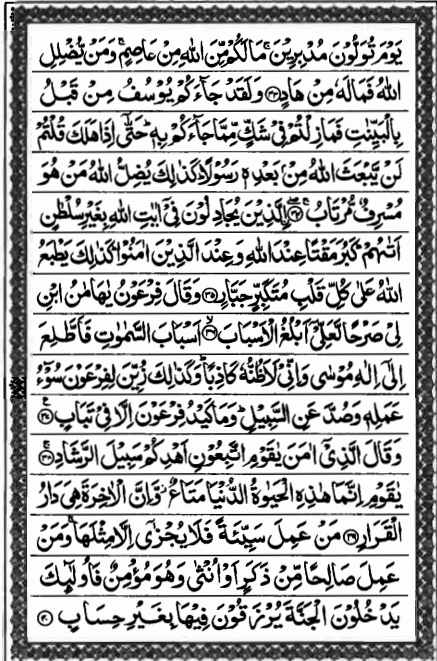 يَوْمَ تُوَلُّوْنَ مُدْبِرِيْنَ ۚ مَا لَكُمْ مِّنَ اللّٰهِ مِنْ عَاصِمٍ ۚ وَمَنْ يُّضْلِلِ
اللّٰهُ فَمَا لَهٗ مِنْ هَادٍ ﴿۳۳﴾ وَلَقَدْ جَآءَكُمْ يُوْسُفُ مِنْ قَبْلُ
بِالْبَيِّنٰتِ فَمَا زِلْتُمْ فِيْ شَكٍّ مِّمَّا جَآءَكُمْ بِهٖ ؕ حَتّٰۤى اِذَا هَلَكَ قُلْتُمْ
لَنْ يَّبْعَثَ اللّٰهُ مِنْۢ بَعْدِهٖ رَسُوْلًا ؕ كَذٰلِكَ يُضِلُّ اللّٰهُ مَنْ هُوَ
مُسْرِفٌ مُّرْتَابٌ ﴿۳۴﴾ اۨلَّذِيْنَ يُجَادِلُوْنَ فِيْۤ اٰيٰتِ اللّٰهِ بِغَيْرِ سُلْطٰنٍ
اَتٰىهُمْ ؕ كَبُرَ مَقْتًا عِنْدَ اللّٰهِ وَعِنْدَ الَّذِيْنَ اٰمَنُوْا ؕ كَذٰلِكَ يَطْبَعُ
اللّٰهُ عَلٰى كُلِّ قَلْبِ مُتَكَبِّرٍ جَبَّارٍ ﴿۳۵﴾ وَقَالَ فِرْعَوْنُ يٰهَامٰنُ ابْنِ
لِيْ صَرْحًا لَّعَلِّيْۤ اَبْلُغُ الْاَسْبَابَ ﴿۳۶﴾ اَسْبَابَ السَّمٰوٰتِ فَاَطَّلِعَ
اِلٰۤى اِلٰهِ مُوْسٰى وَاِنِّيْ لَاَظُنُّهٗ كَاذِبًا ؕ وَكَذٰلِكَ زُيِّنَ لِفِرْعَوْنَ سُوْٓءُ
عَمَلِهٖ وَصُدَّ عَنِ السَّبِيْلِ ؕ وَمَا كَيْدُ فِرْعَوْنَ اِلَّا فِيْ تَبَابٍ ﴿۳۷﴾
وَقَالَ الَّذِيْۤ اٰمَنَ يٰقَوْمِ اتَّبِعُوْنِ اَهْدِكُمْ سَبِيْلَ الرَّشَادِ ﴿۳۸﴾
يٰقَوْمِ اِنَّمَا هٰذِهِ الْحَيٰوةُ الدُّنْيَا مَتَاعٌ ؗ وَّاِنَّ الْاٰخِرَةَ هِيَ دَارُ
الْقَرَارِ ﴿۳۹﴾ مَنْ عَمِلَ سَيِّئَةً فَلَا يُجْزٰۤى اِلَّا مِثْلَهَا ۚ وَمَنْ
عَمِلَ صَالِحًا مِّنْ ذَكَرٍ اَوْ اُنْثٰى وَهُوَ مُؤْمِنٌ فَاُولٰٓئِكَ
يَدْخُلُوْنَ الْجَنَّةَ يُرْزَقُوْنَ فِيْهَا بِغَيْرِ حِسَابٍ ﴿۴۰﴾